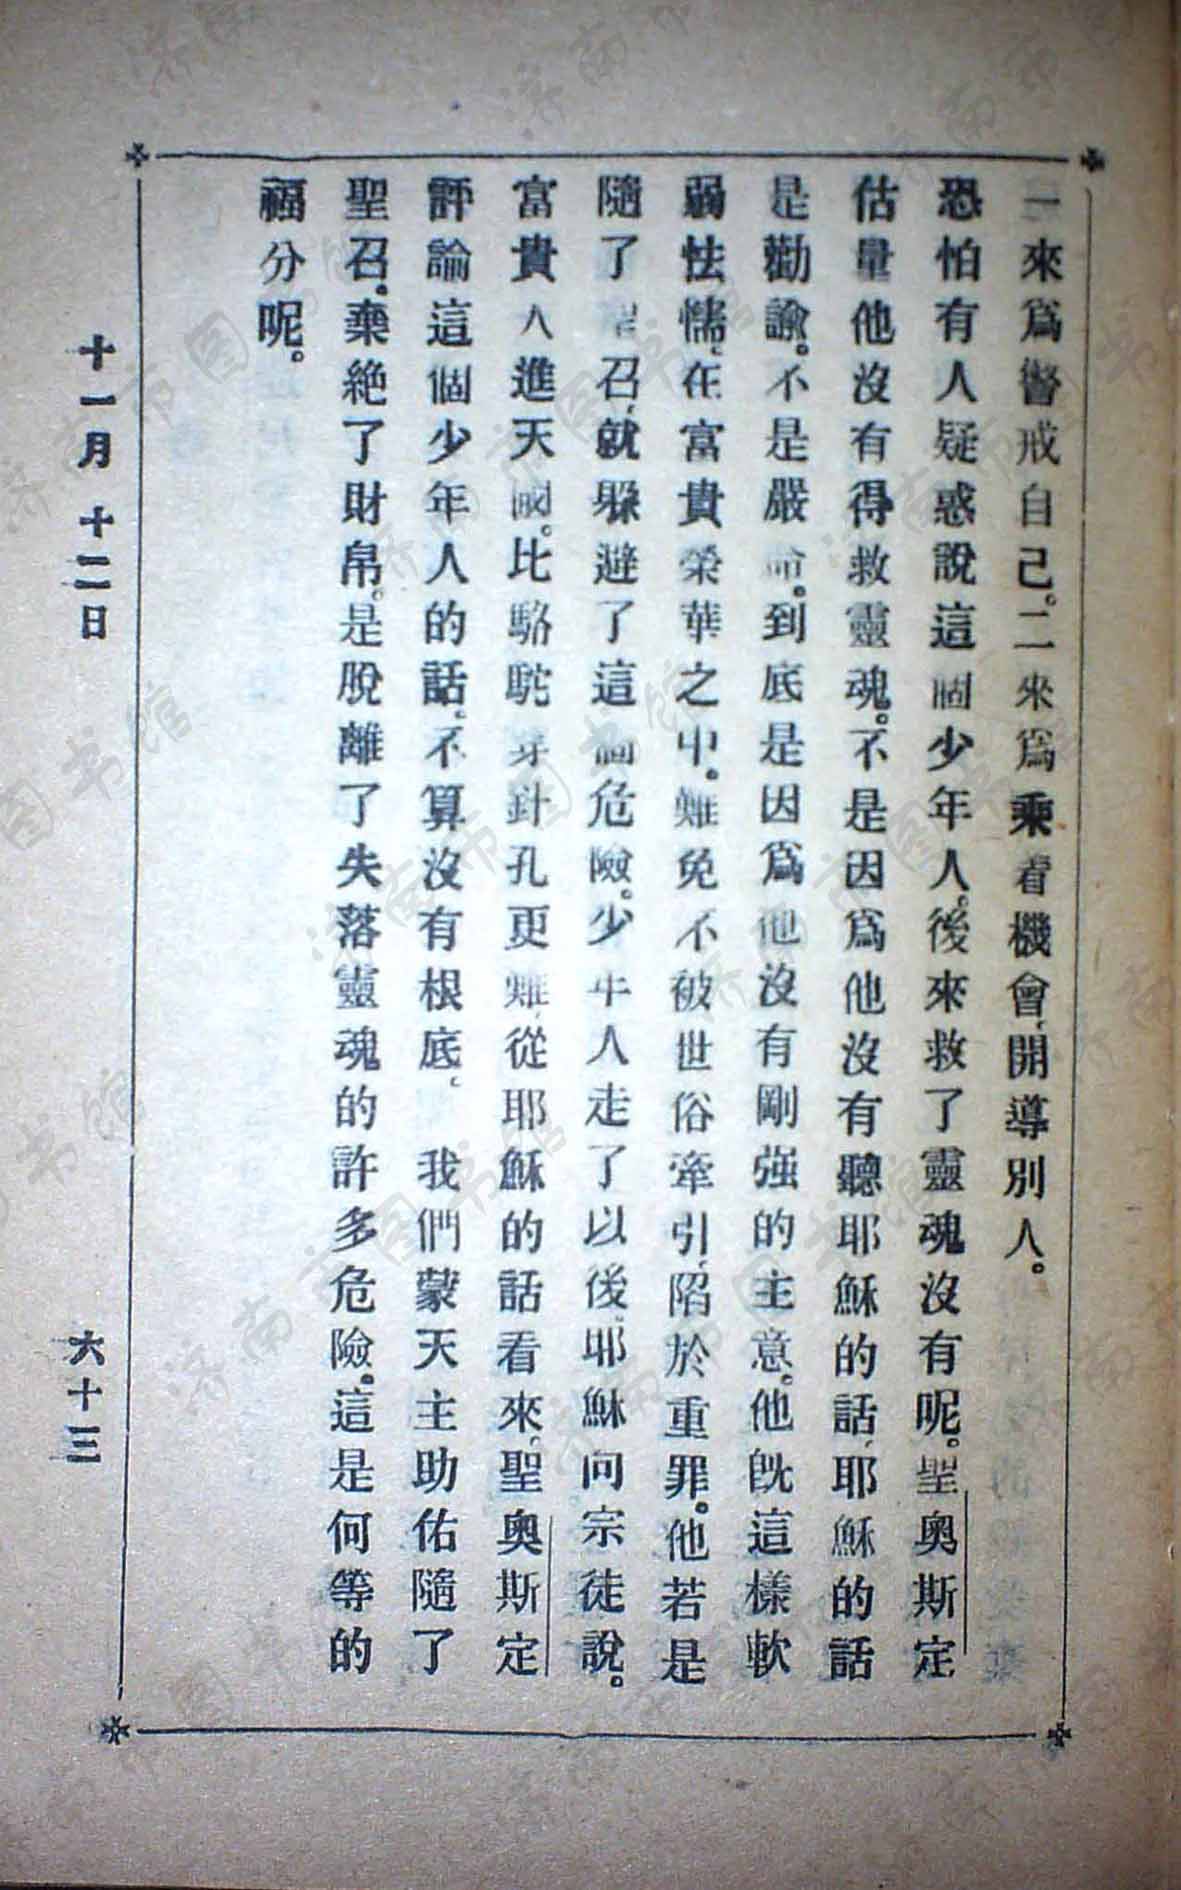 一來爲警戒自己。二來爲乘着機會、開導別人。
恐怕有人疑惑說這個少年人。後來救了靈魂沒有呢。聖奧斯定
估量他沒有得救靈魂。不是因爲他沒有聽耶穌的話、耶穌的話
是勸諭。不是嚴命。到底是因爲他沒有剛强的主意。他旣這樣軟
弱怯懦、在富貴榮華之中。難免不被世俗牽引、陷於重罪。他若是
隨了聖召、就躲避了這個危險。少年人走了以後、耶穌向宗徒說。
富貴人進天國。比駱駝穿針孔更難、從耶穌的話看來、聖奧斯定
評論這個少年人的話、不算沒有根底、我們蒙天主助佑隨了
聖召。棄絶了財帛。是脫離了失落靈魂的許多危險。這是何等的
福分呢。
十一月 十二日 六十三
济南市图书馆